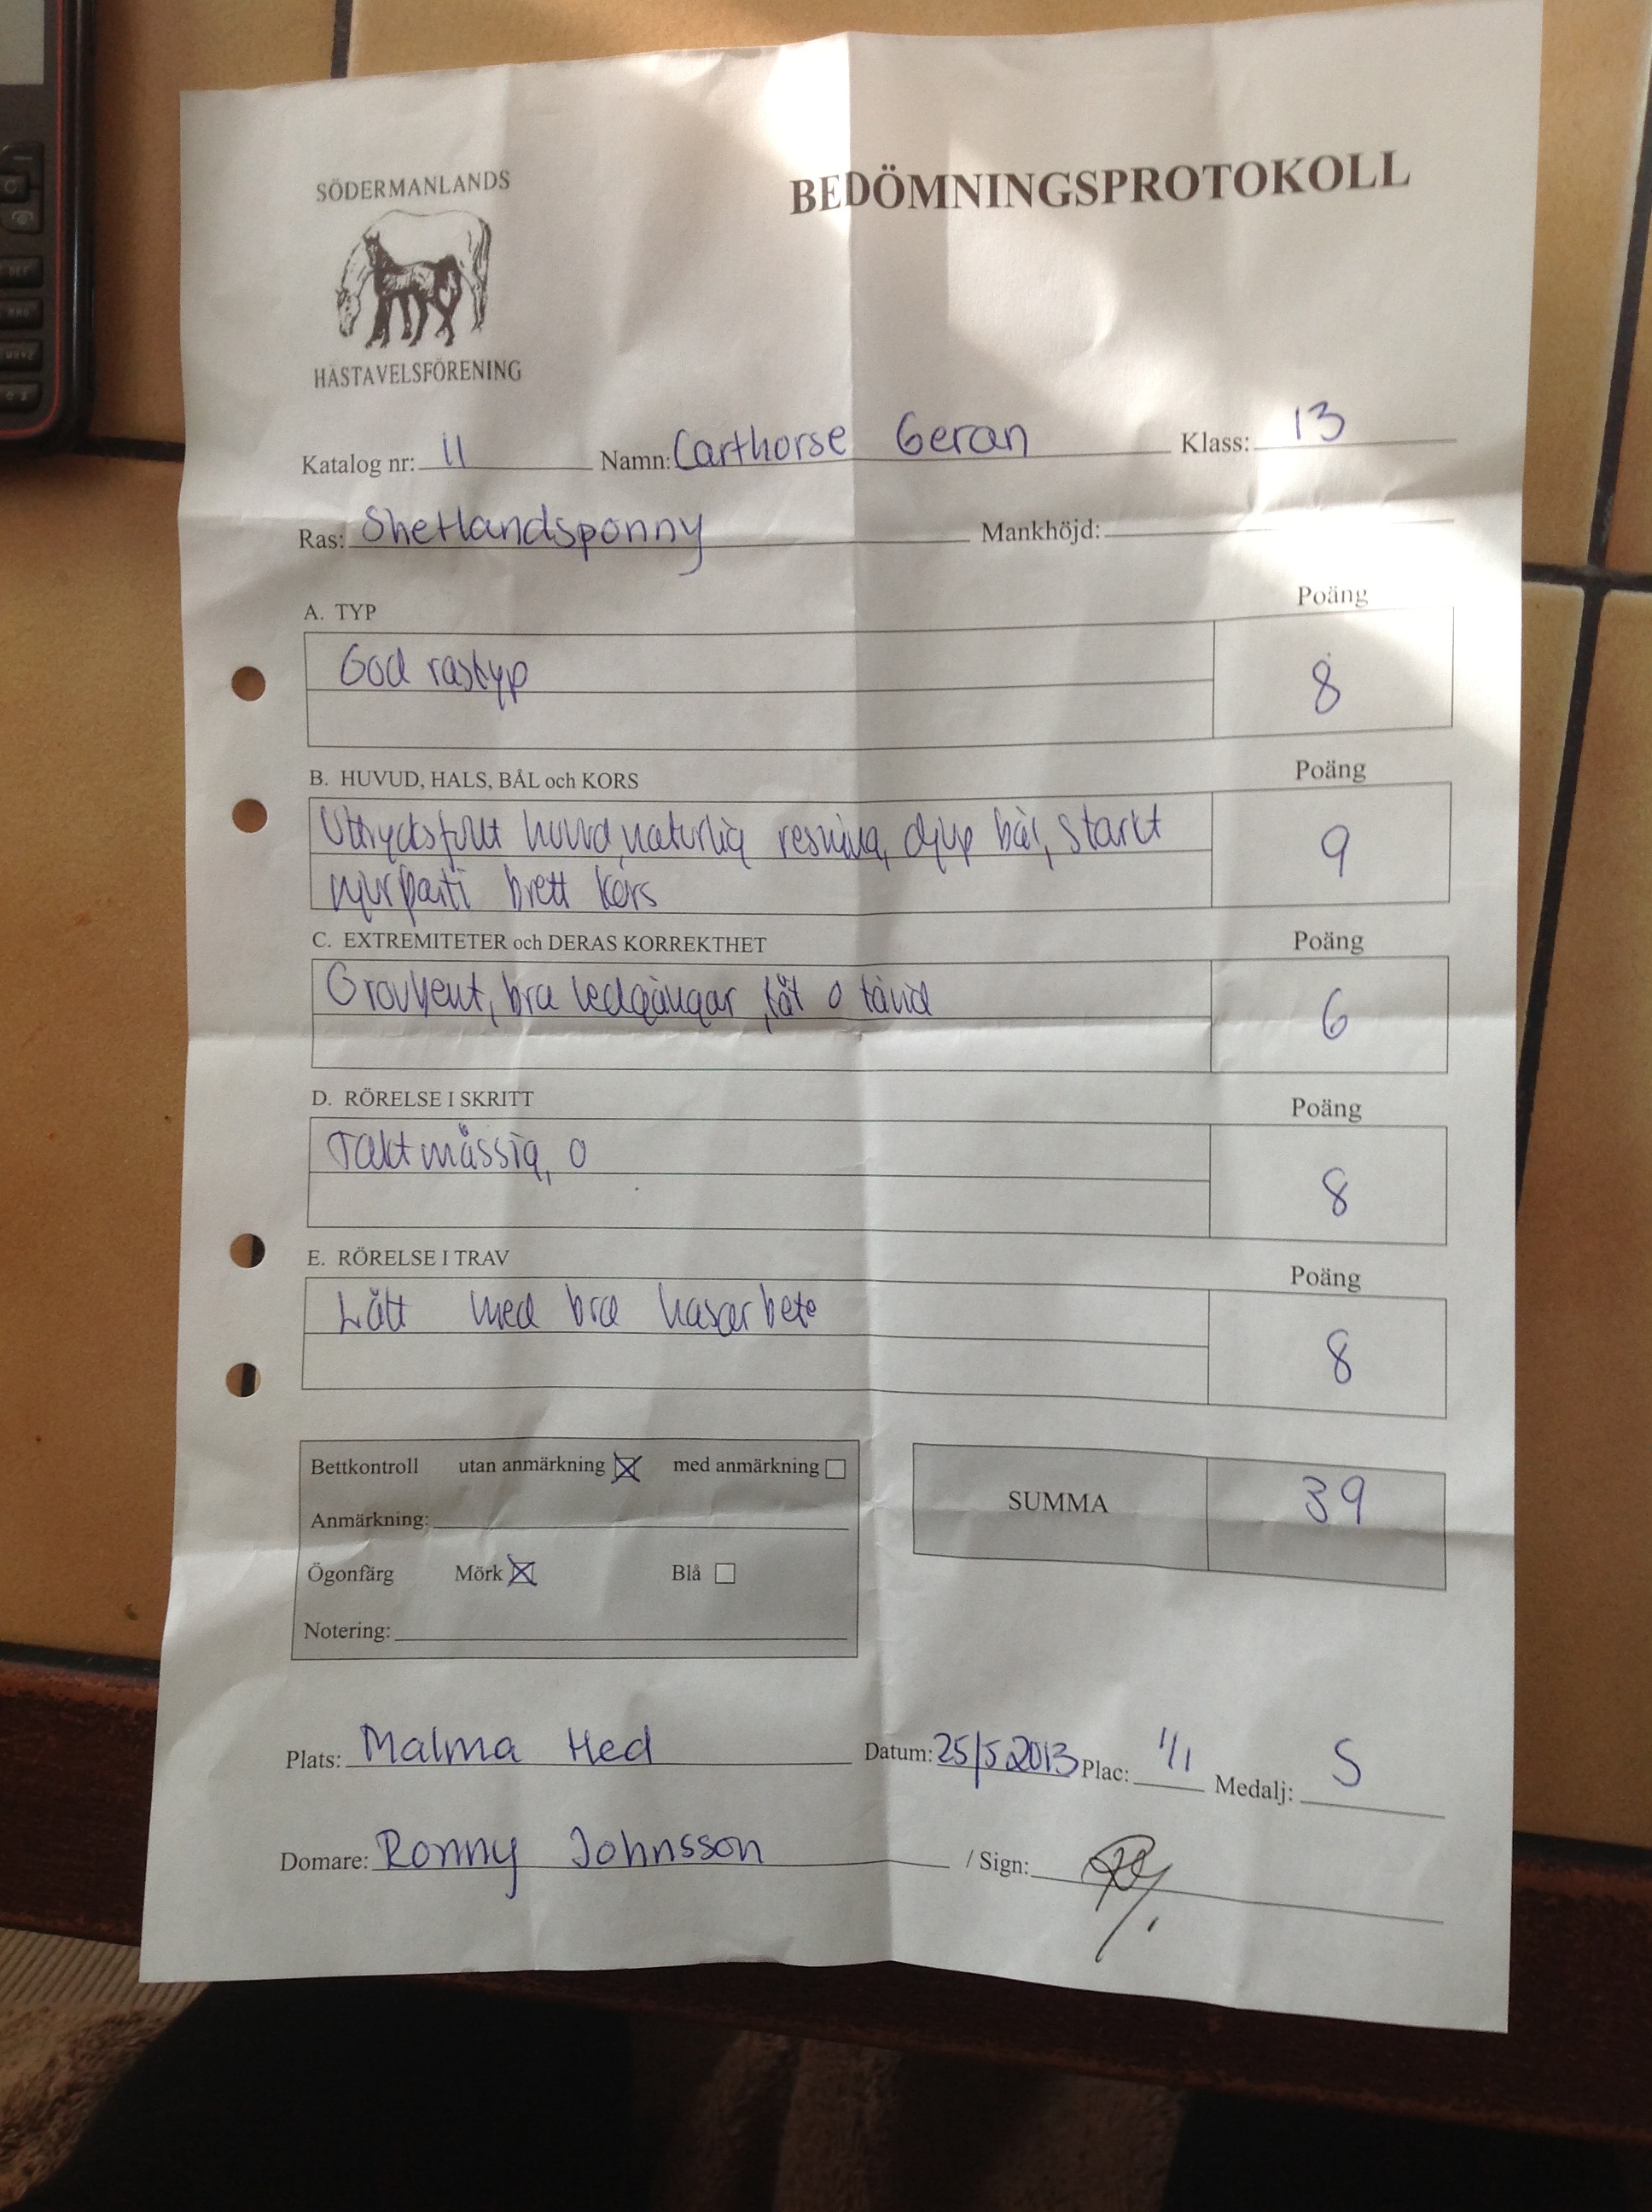 SÖDERMANLANDS
HÄSTAVELSFÖRENING
BEDÖMNINGSPROTOKOLL
Katalog nr: 11 Namn: Carthorse Geran Klass: 13
Ras: Shetlandsponny Mankhöjd:
A. TYP Poäng
God rastyp
8
B. HUVUD, HALS, BÅL och KORS Poäng
Uttrycksfullt huvud, naturlig resning, djup bål, starkt
9
njurparti brett kors
C. EXTREMITETER och DERAS KORREKTHET Poäng
bra ledgångar, tåt o tånd
6
D. RÖRELSE I SKRITT Poäng
Taktmässig, o
8
E. RÖRELSE I TRAV Poäng
Lätt med bra hasarbete
8
Bettkontroll utan anmärkning med anmärkning
Anmärkning:
Ögonfärg Mörk Blå
Notering:
SUMMA 39
Plats: Malma Hed Datum: 25/5 2013 Plac: 1/1 Medalj: S
Domare: Ronny Johnsson / Sign: